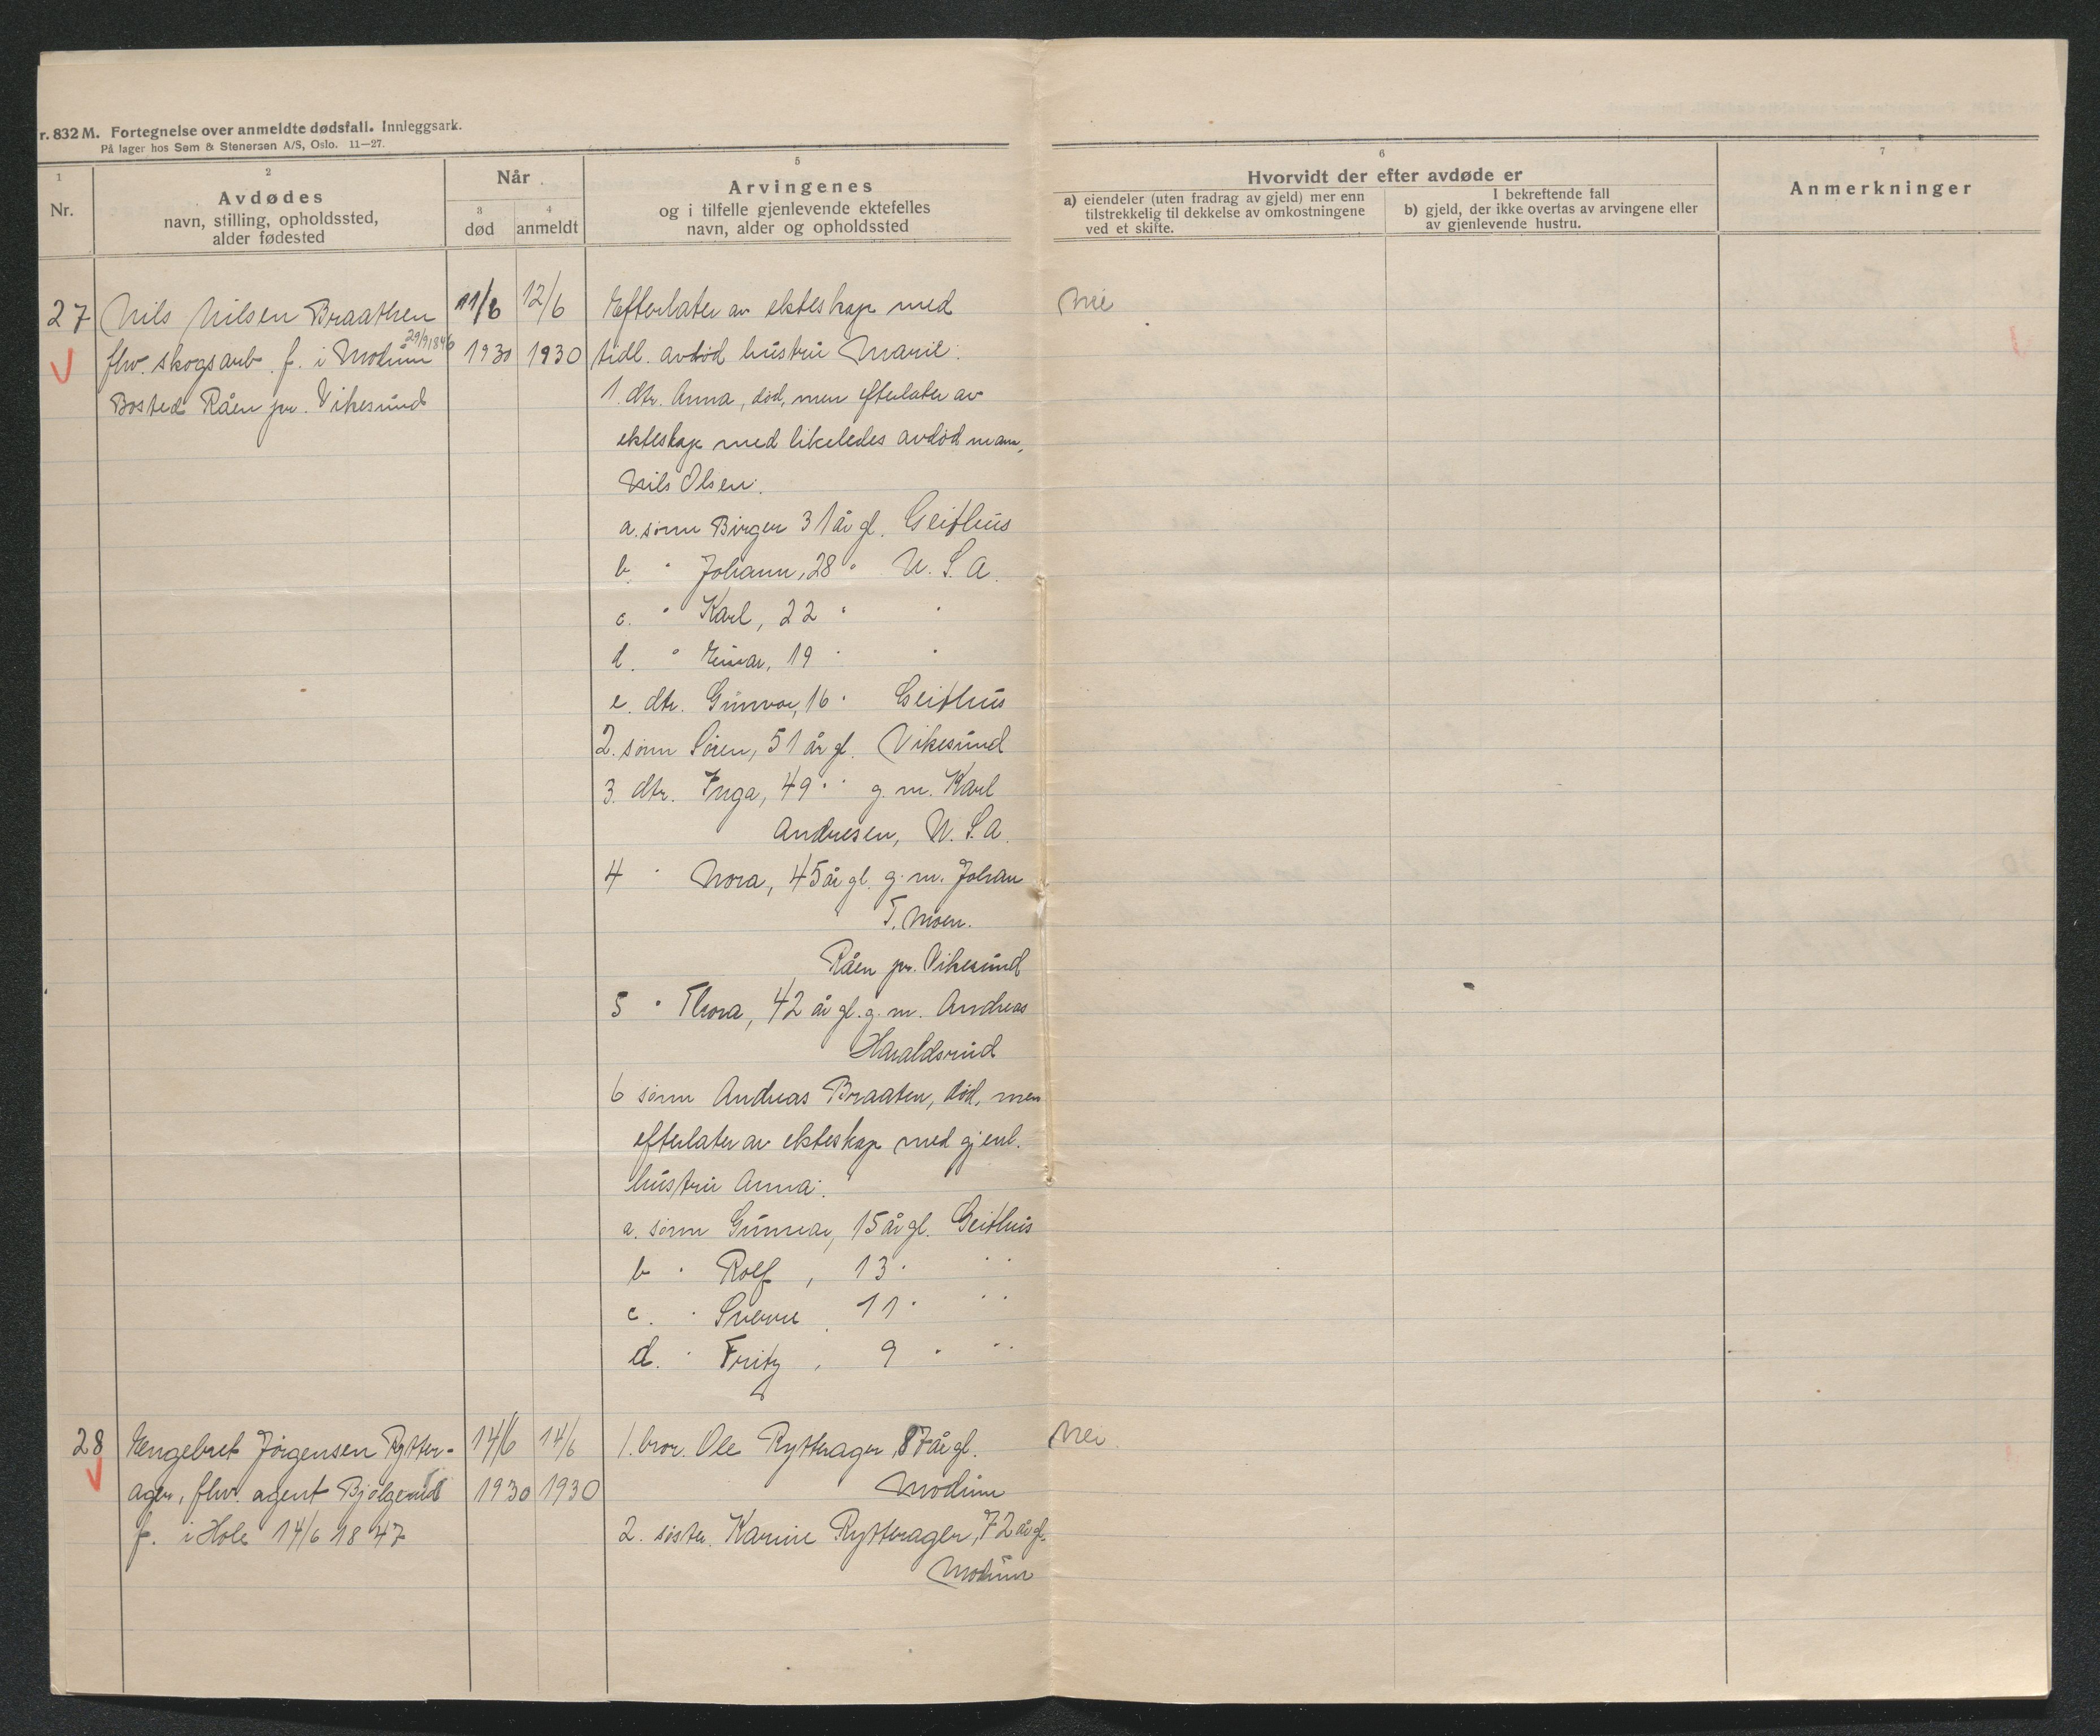 r. 832 M. Fortegnelse over anmeldte dødsfall. Innleggsark.
På lager hos Sem & Stenersen A/S, Oslo. 11—27.
1
Nr.
2
Avdødes
navn, stilling, opholdssted,
alder fødested
Når
3
død
4
anmeldt
5
Arvingenes
og i tilfelle gjenlevende ektefelles
navn, alder og opholdssted
6
Hvorvidt der efter avdøde er
a) eiendeler (uten fradrag av gjeld) mer enn
tilstrekkelig til dekkelse av omkostningene
ved et skifte.
I bekreftende fall
b) gjeld, der ikke overtas av arvingene eller
av gjenlevende hustru.
7
Anmerkninger
27 Nils Nilsen Braathen
flw. skogsarb. f. i Modum 29/9 1846
Bosted Råen pr. Vikesund
11/6 1930
12/6 1930
Efterlater av ekteskap med
tidl. avdød hustru Marie:
1. dtr. Anna, død, men efterlater av
ekteskap med likeledes avdød mann,
Nils Olsen:
a. sønn Birger 31 år gl. Geithus
b. " Johann, 28 " U. S. A.
c. " Karl, 22 " "
d. " Einar, 19 " "
e. dtr. Gunvor, 16 " Geithus
2. sønn Søren, 51 år gl. Vikesund
3. dtr. Inga, 49 " " g. m. Karl
Andresen, U. S. A.
4 " Nora, 45 år gl. g. m. Johan
T. Moen.
Råen pr. Vikesund
5 " Thora, 42 år gl. g. m. Andreas
Haraldsrud
6 sønn Andreas Braaten, død, men
efterlater av ekteskap med gjenl.
hustru Anna:
a. sønn Gunnar, 15 år gl. Geithus
b " Rolf, 13 " " "
c. " Sverre, 11 " " "
d. " Fritz, 9 " " "
Nei
28 Engebret Jörgensen Rytter-
ager, flw. agent Bjølgerud
f. i Hole 14/6 1847
14/6 1930
14/6 1930
1. bror. Ole Rytterager, 87 år gl.
Modum
2. søster. Karine Rytterager, 72 år gl.
Modum
Nei